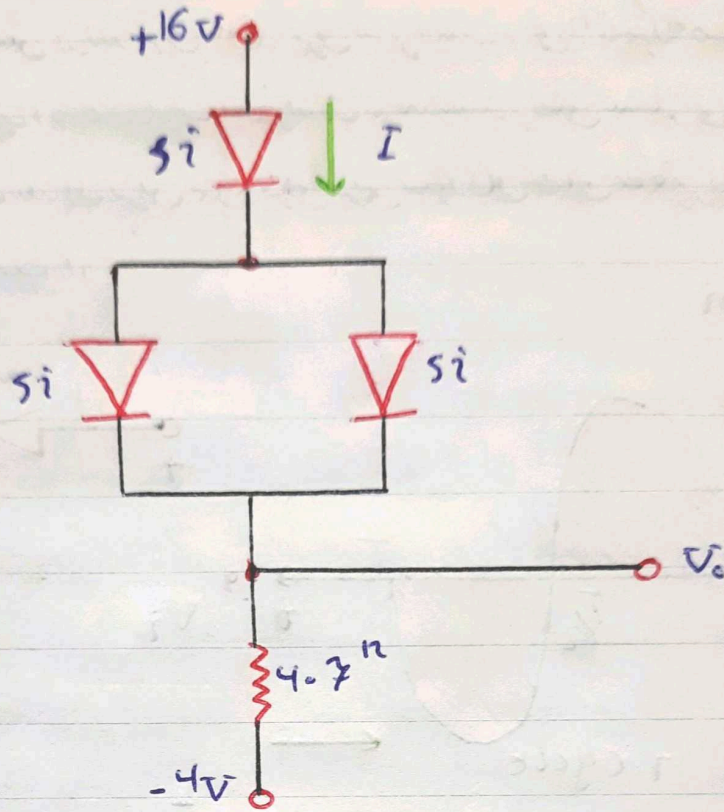 +16V
si
I
si
si
V₀
4.7Ω
-4V